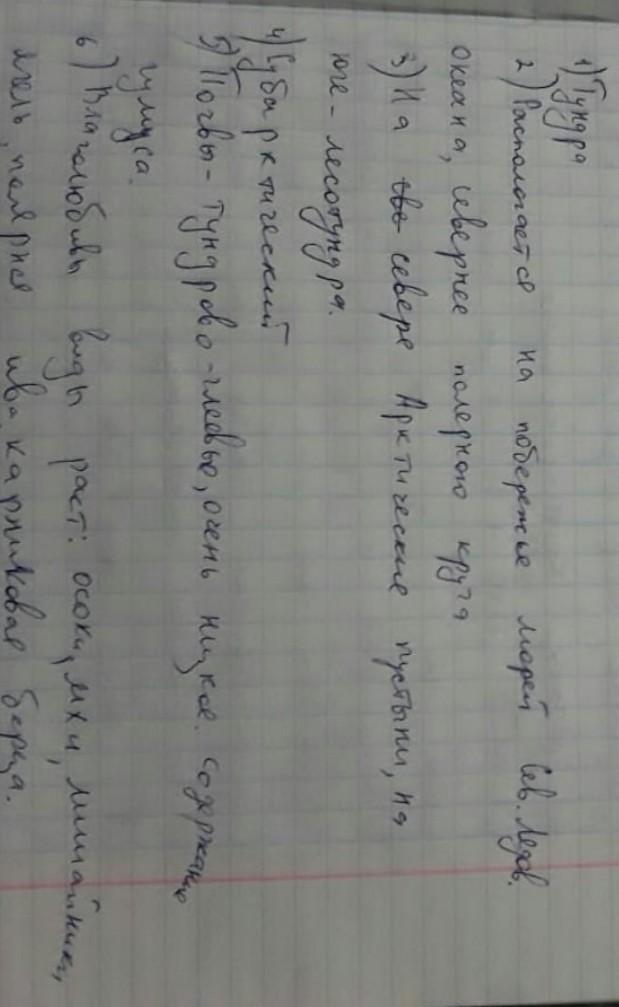 1) Тундра
2) Распологается на побережье морей Сев. Ледов.
океана, севернее полерного круга
3) На севере Арктические пустыни, на
юге - лесотундра.
4) Субарктический
5) Почвы - Тундрово - глеевые, очень низкое содержание
гумуса.
6) Влаголюбивы виды раст: осоки, мхи, лишайники,
ягель, полярная ива, карликовая береза.